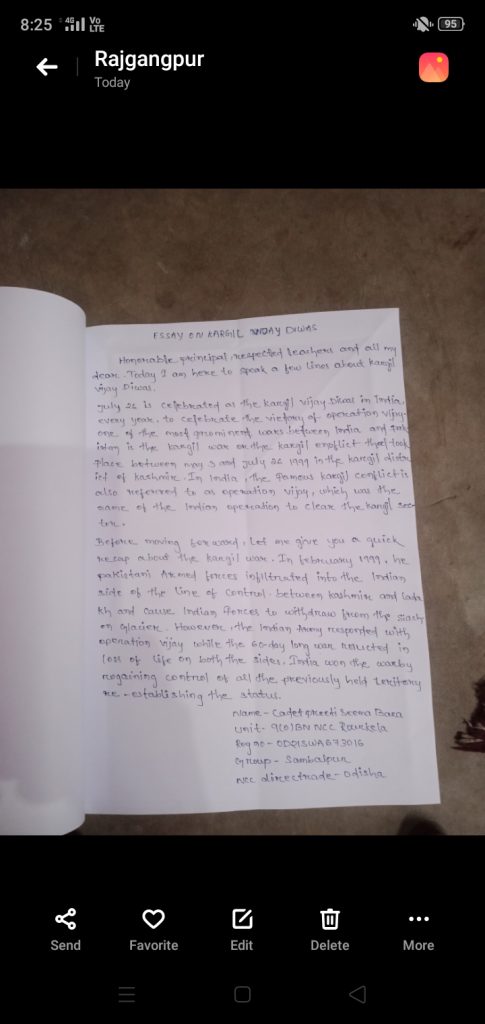 8:25 4G Vo LTE 95
Rajgangpur
Today
ESSAY ON KARGIL VIJAY DIWAS
Honorable principal, respected teachers and all my
dear. Today I am here to speak a few lines about kargil
vijay Diwas.
July 26 is celebrated as the kargil vijay Diwas in India
every year. to celebrate the victory of operation vijay-
one of the most prominent wars between India and Pak
istan is the kargil war or the kargil conflict that took
place between may 3 and july 26 1999 in the kargil distr
ict of kashmir. In India, the famous kargil conflict is
also referred to as operation vijay, which was the
name of the Indian operation to clear the kargil sec-
tor.
Before moving forward, Let me give you a quick
recap about the kargil war. In february 1999, he
pakistani Armed forces infiltrated into the Indian
side of the line of control. between kashmir and lada
kh and cause Indian forces to withdraw from the siach
en Glacier. However, the Indian Army responded with
operation vijay while the 60-day long war resulted in
loss of life on both the sides, India won the war by
regaining control of all the previously held territory
re-establishing the status.
Name - Cadet preeti Seema Bara
Unit -
BN NCC Rourkela
Reg no -
Group - Sambalpur
NCC directrade - Odisha
Send Favorite Edit Delete More